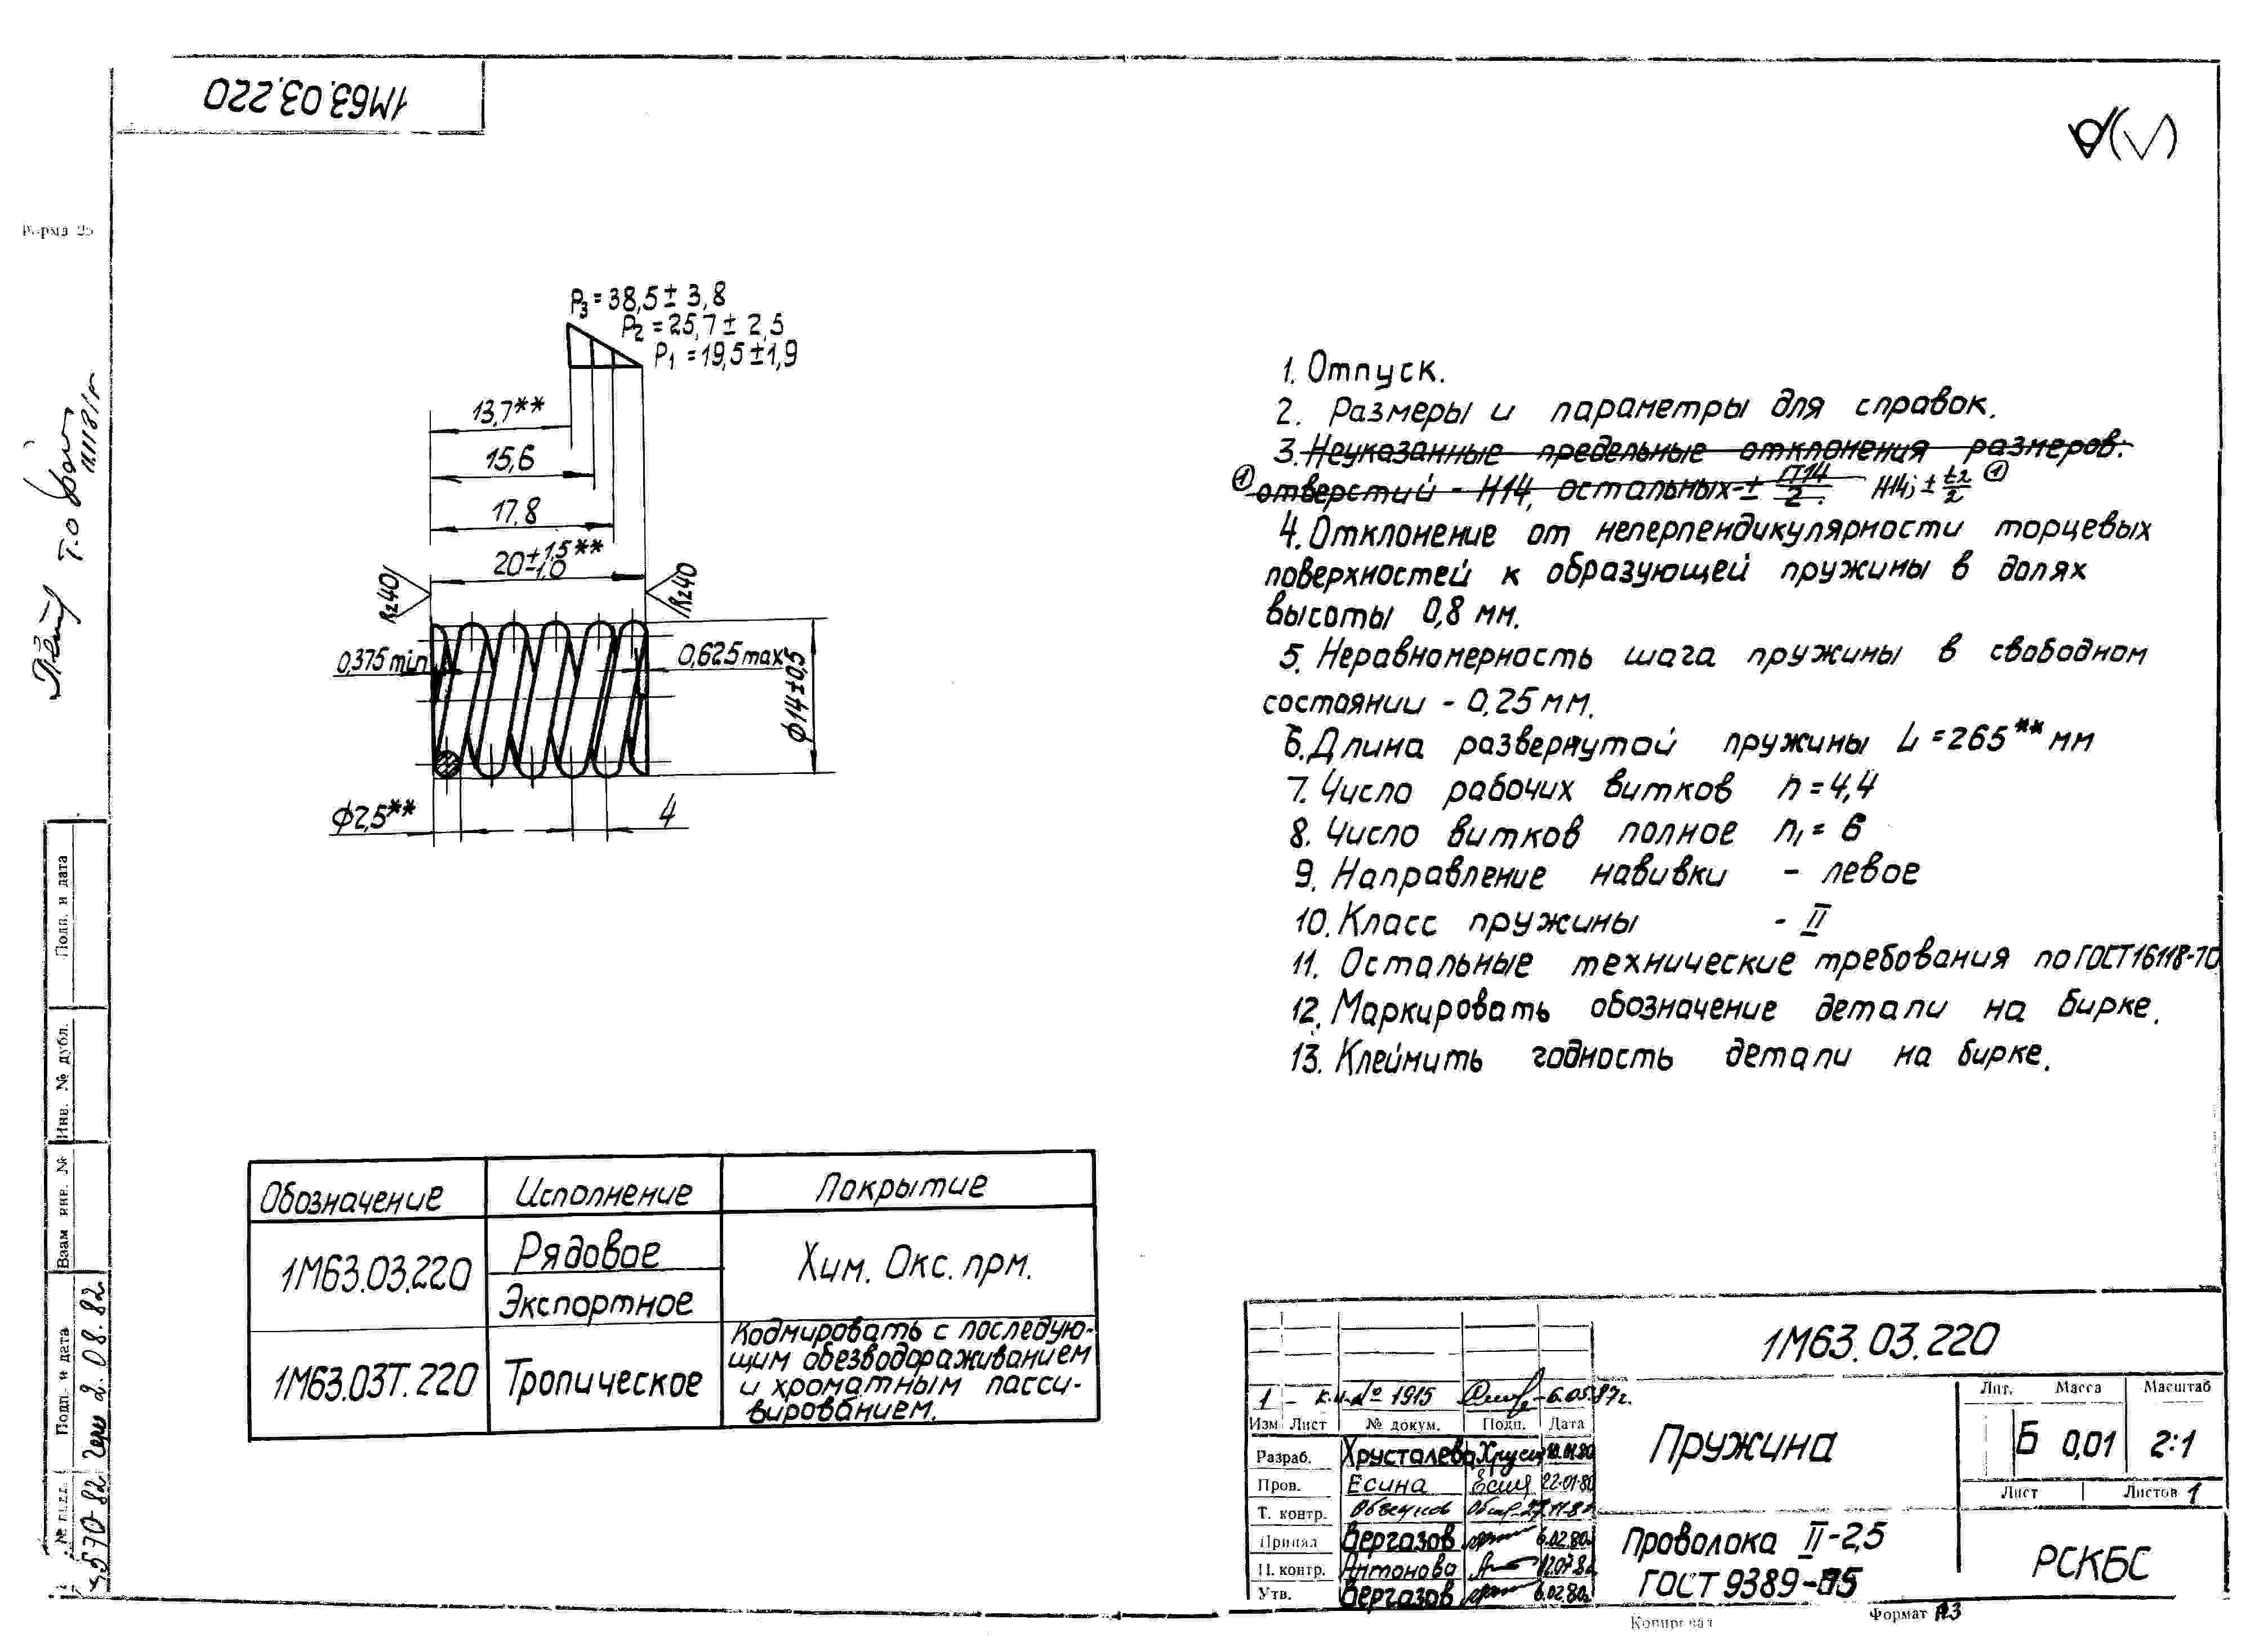 1М63.03.220
Форма 25
P₃ = 38,5 ± 3,8
P₂ = 25,7 ± 2,5
P₁ = 19,5 ± 1,9
13,7**
15,6
17,8
20 ± 1,5 1,0 **
Rz40
Rz40
0,375 min
0,625 max
ϕ14±0,5
ϕ2,5**
4
1. Отпуск.
2. Размеры и параметры для справок.
3. Неуказанные предельные отклонения размеров:
① отверстий - H14, остальных ± IT14/2. H14; ± t2/2 ①
4. Отклонение от неперпендикулярности торцевых
поверхностей к образующей пружины в долях
высоты 0,8 мм.
5. Неравномерность шага пружины в свободном
состоянии - 0,25 мм.
6. Длина развернутой пружины L = 265** мм
7. Число рабочих витков n = 4,4
8. Число витков полное n₁ = 6
9. Направление навивки - левое
10. Класс пружины - II
11. Остальные технические требования по ГОСТ 16118-70
12. Маркировать обозначение детали на бирке.
13. Клеймить годность детали на бирке.
Обозначение Исполнение Покрытие
1М63.03.220 Рядовое Хим. Окс. прм.
Экспортное
1М63.03Т.220 Тропическое Кадмировать с последую-
щим обезводораживанием
и хроматным пасси-
вированием.
Подп. и дата
Инв. № дубл.
Взам инв. №
Подп. и дата
2.08.82
1М63.03.220
1 - № 1915 6.05.87г.
Изм Лист № докум. Подп. Дата
Разраб. Хрусталева
Пров. Есина 22.01.80
Т. контр.
Принял Вергазов 6.02.80
Н. контр. Антонова
Утв. Вергазов 6.02.80
Пружина
Лит. Масса Масштаб
Б 0,01 2:1
Лист Листов 1
Проволока II-2,5
ГОСТ 9389-75
РСКБС
Копировал Формат А3